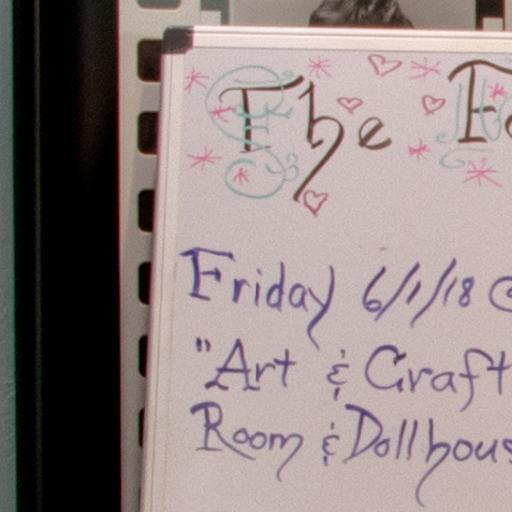 The
Friday 6/1/18 @
"Art & Craft
Room & Dollhous